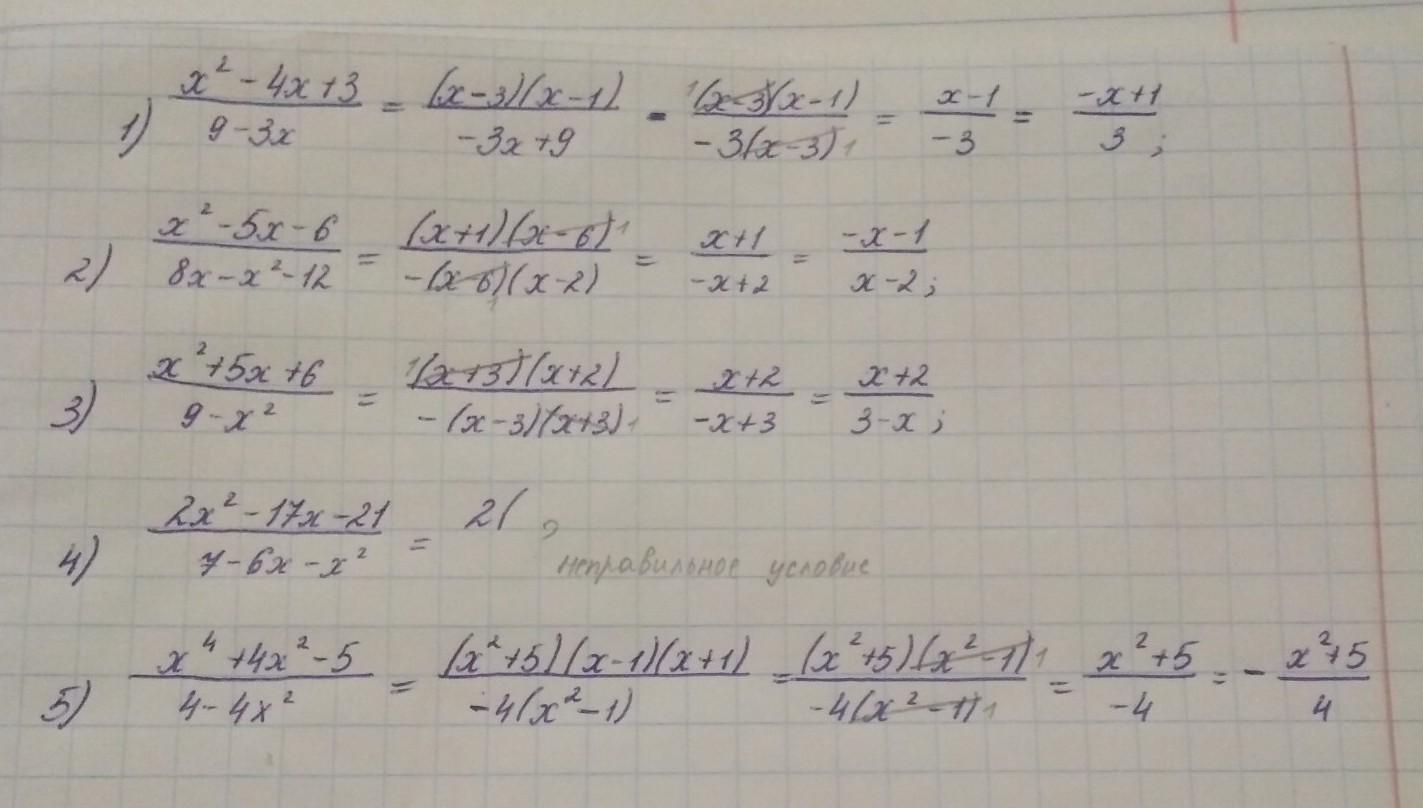 1) (x² - 4x + 3)/(9 - 3x) = ((x-3)(x-1))/(-3x+9) - (1(x-3)(x-1))/(-3(x-3)1) = (x-1)/(-3) = (-x+1)/3;
2) (x² - 5x - 6)/(8x - x² - 12) = ((x+1)(x-6)1)/(-(x-6)1(x-2)) = (x+1)/(-x+2) = (-x-1)/(x-2);
3) (x² + 5x + 6)/(9 - x²) = (1(x+3)(x+2))/(-(x-3)(x+3)1) = (x+2)/(-x+3) = (x+2)/(3-x);
4) (2x² - 17x - 21)/(7 - 6x - x²) = 2( ,
неправильное условие
5) (x⁴ + 4x² - 5)/(4 - 4x²) = ((x²+5)(x-1)(x+1))/(-4(x²-1)) = ((x²+5)(x²-1)1)/(-4(x²-1)1) = (x²+5)/(-4) = - (x²+5)/4